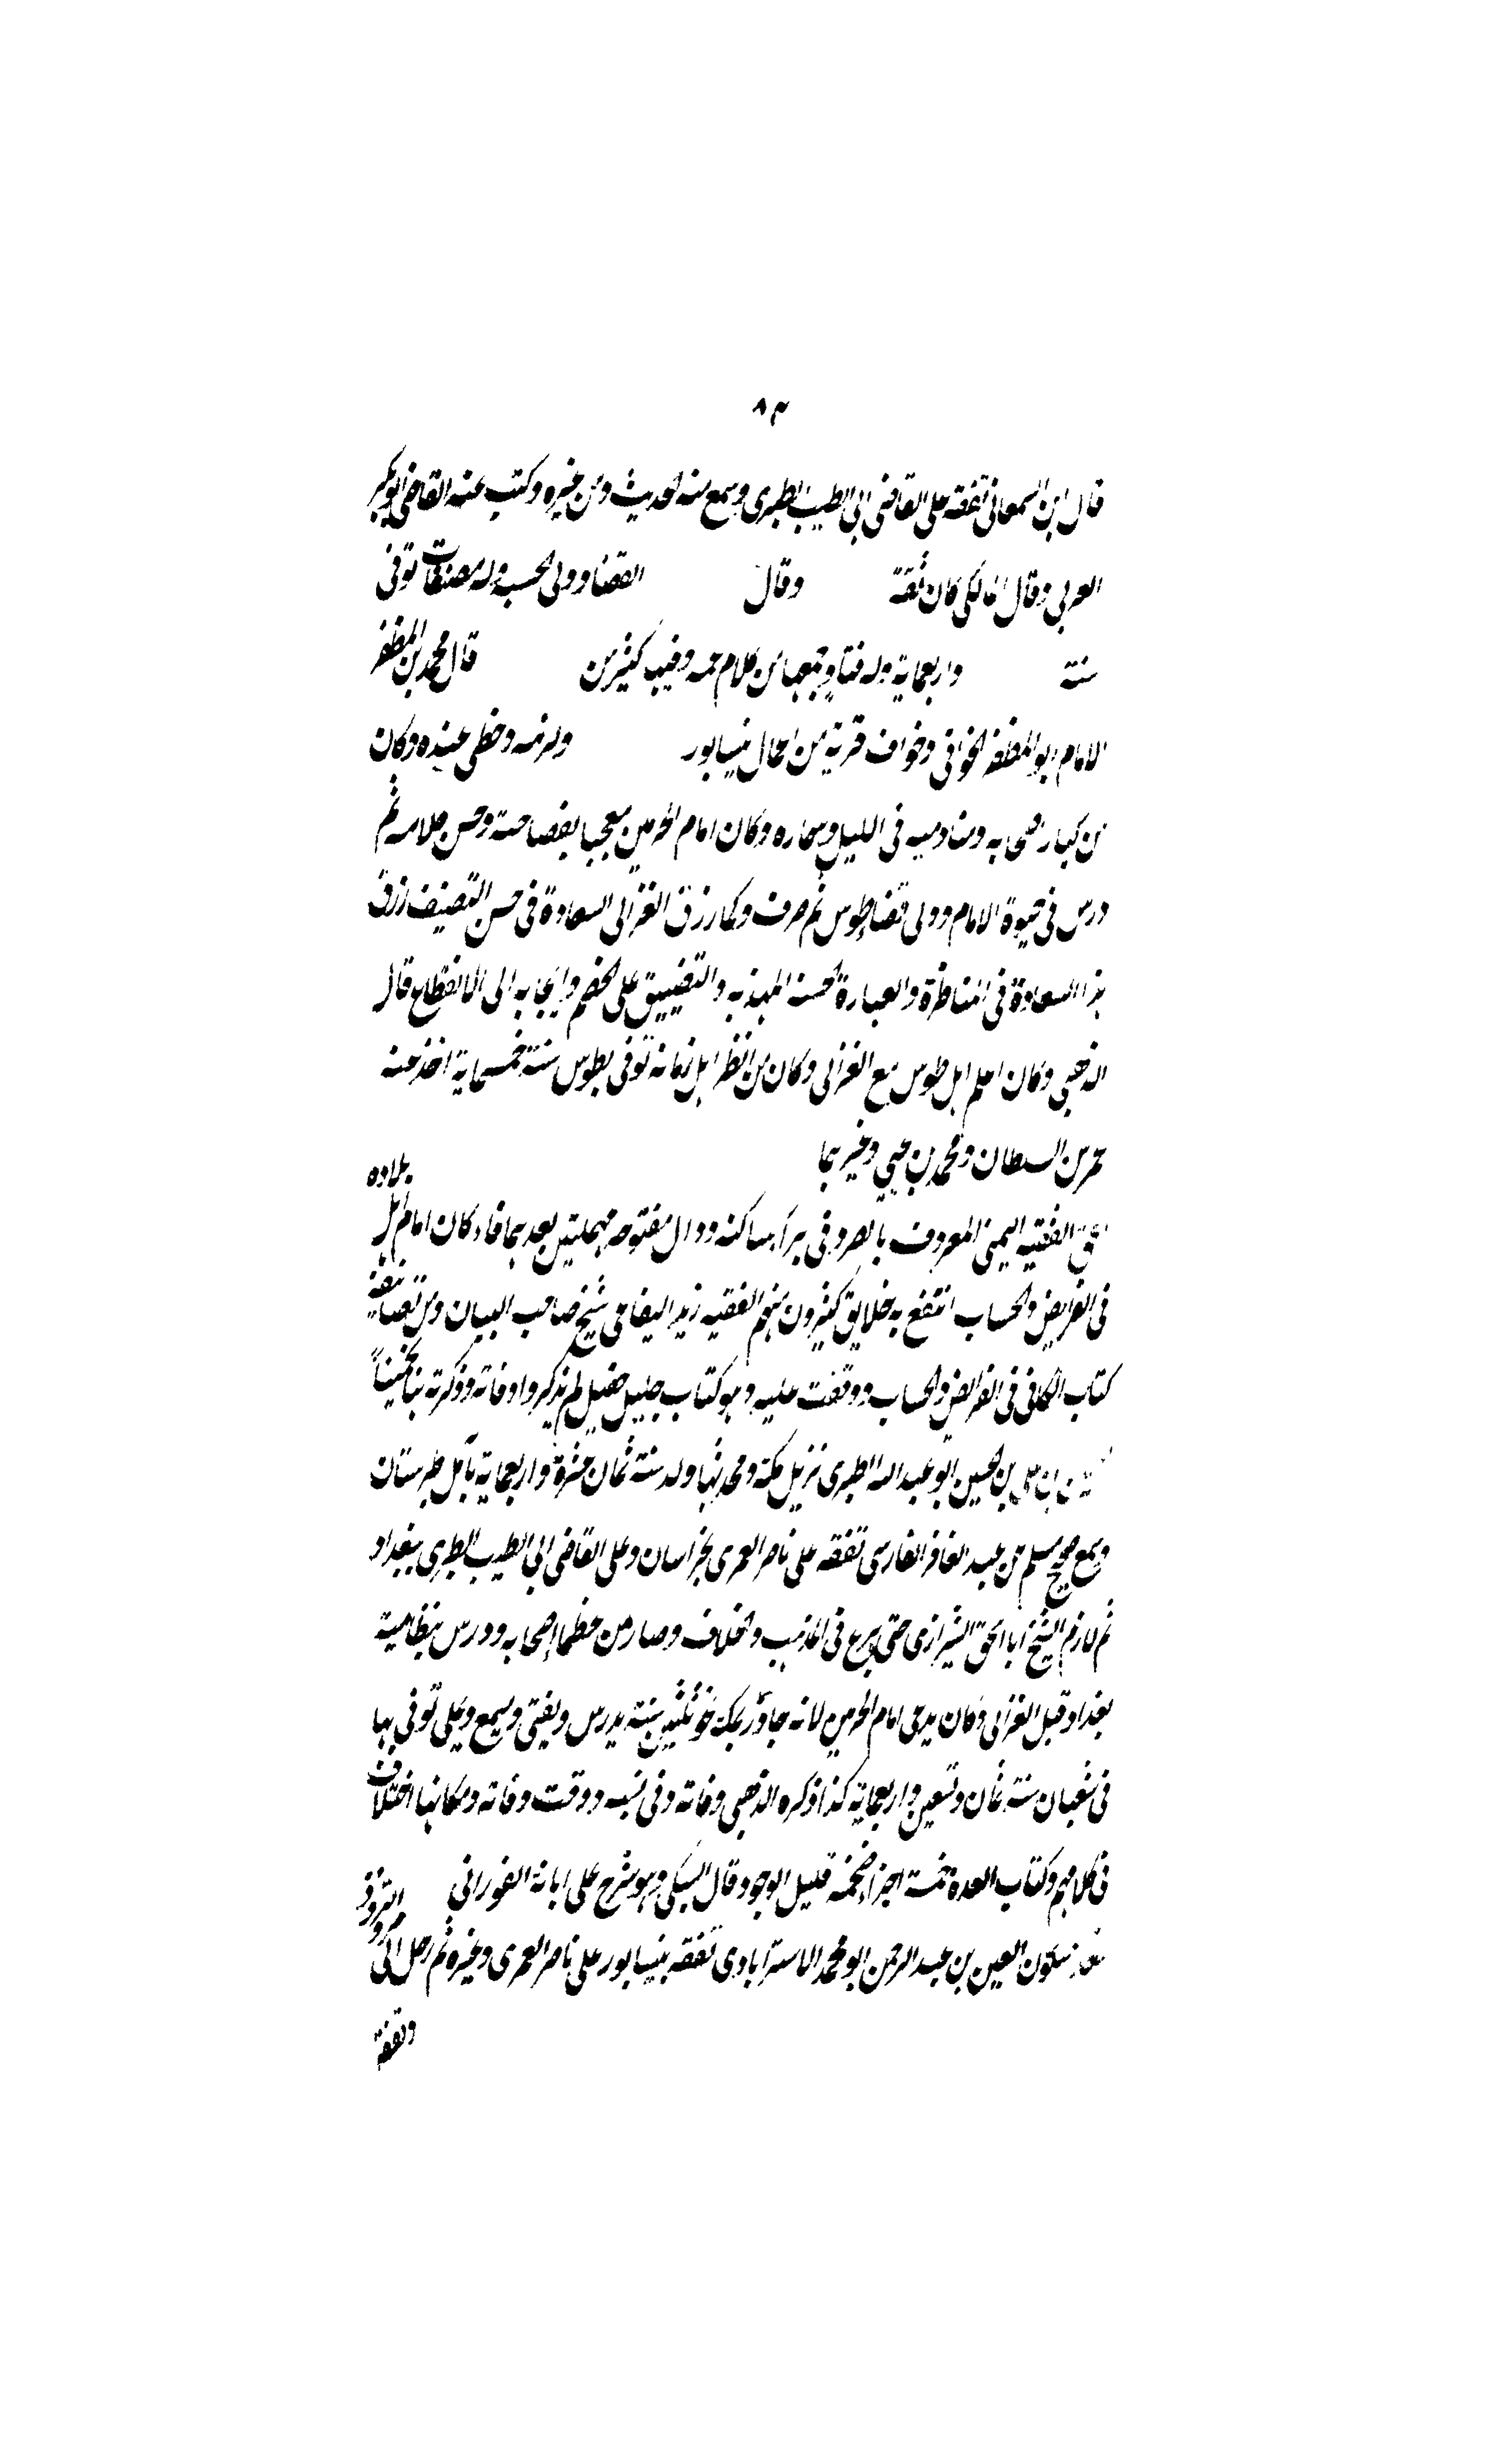 ٨٣
قال ابن السمعانی تفقه علی القاضی ابی الطیب الطبری وسمع منه الحدیث ومن غیره وکتب عنه القاضی ابوبکر
العربی وقال کان ثقة وقال القضا وولی الحسبه وله مصنفات توفی
سنة واربعمایة وله فتاو جمعها من کلام کثیر من قال محمد بن المظفر
الامام ابو المظفر الخوافی وخواف قریة من اعمال نیسابور ولزمه وحظی عنده وکان
من کبار اصحابه ومنادمیه فی اللیل وسماره وکان امام الحرمین معجبا بفصاحته وحسن کلامه ثم
درس فی حیوة الامام وولی قضا طوس ثم صرف وکما رزق الغزالی السعادة فی حسن التصنیف رزق
هذا السعادة فی المناظرة والعبارة الحسنة المهذبه والتضییق علی الخصم والجابه الی الانقطاع قال
الذهبی وکان اعلم اهل طوس مع الغزالی وکان من انظر اهل زمانه توفی بطوس سنة خمسمایة اخذ عنه
عمر بن السلطان ومحمد بن یحیی وغیرهما
بلاده
اسحق الفقیه الیمنی المعروف بالصردفی براء ساکنه ودال مفتوحه مهملتین بعدهما فاء کان امام اهل
فی الفرایض والحساب انتفع به خلایق کثیرون منهم الفقیه زید الیفاعی شیخ صاحب البیان ومن تصانیفه
کتاب الکافی فی الفرایض والحساب ووقفت علیه وهو کتاب جلیل حفیل لم یذکروا وفاته وذکرته هنا تخمیناً
بن علی بن الحسین ابو عبد الله الطبری نزیل مکة ومحدثها ولد سنة ثمان عشرة واربعمایة بآمل طبرستان
وسمع صحیح مسلم من عبد الغافر الفارسی تفقه علی ناصر العمری بخراسان وعلی القاضی ابی الطیب الطبری ببغداد
ثم لازم الشیخ ابا اسحق الشیرازی حتی برع فی المذهب والخلاف وصار من عظما اصحابه ودرس بنظامیة
بغداد قبل الغزالی وکان یدعی امام الحرمین لانه جاور بمکة نحو ثلثین سنة یدرس ویفتی ویسمع ویملی توفی بها
فی شعبان سنة ثمان وتسعین واربعمایة کذا ذکره الذهبی وفاته وفی نسبه ووقت وفاته ومکانها اختلاف
فی کلامهم وکتاب العدة خمسة اجزا ضخمة قلیل الوجود قال السبکی وهو شرح علی ابانة الفورانی
بسکون العین بن عبد الرحمن ابو محمد الاستراباوی تفقه بنیسابور علی ناصر العمری وغیره ثم رحل الی مرو الروذ
وتفقه